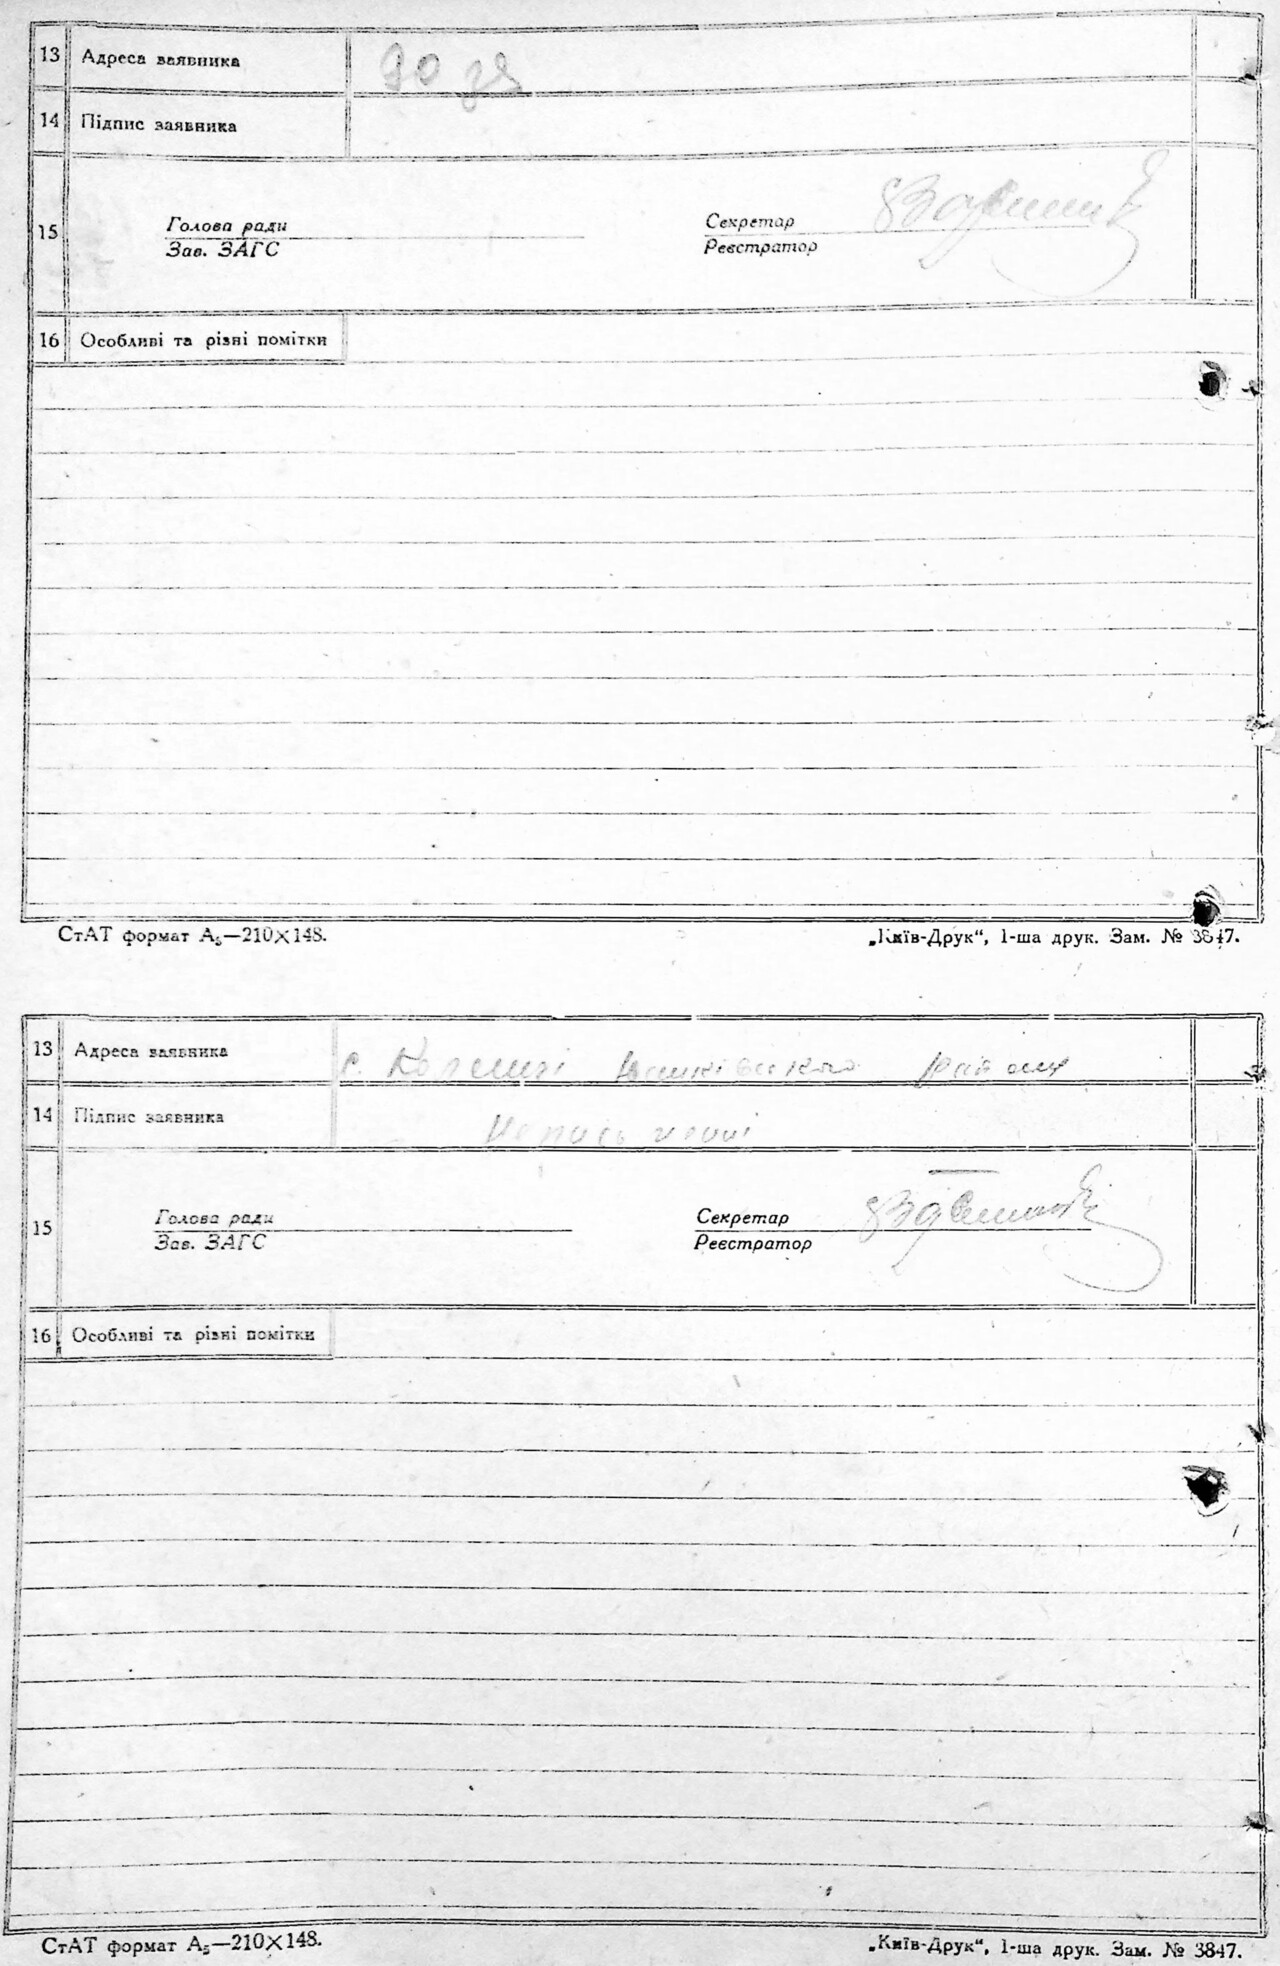 13 Адреса заявника
14 Підпис заявника
15 Голова ради Секретар
Зав. ЗАГС Реєстратор
16 Особливі та різні помітки
СтАТ формат А₅—210×148. „Київ-Друк“, 1-ша друк. Зам. № 3847.
13 Адреса заявника с. району
14 Підпис заявника
15 Голова ради Секретар
Зав. ЗАГС Реєстратор
16 Особливі та різні помітки
СтАТ формат А₅—210×148. „Київ-Друк“, 1-ша друк. Зам. № 3847.